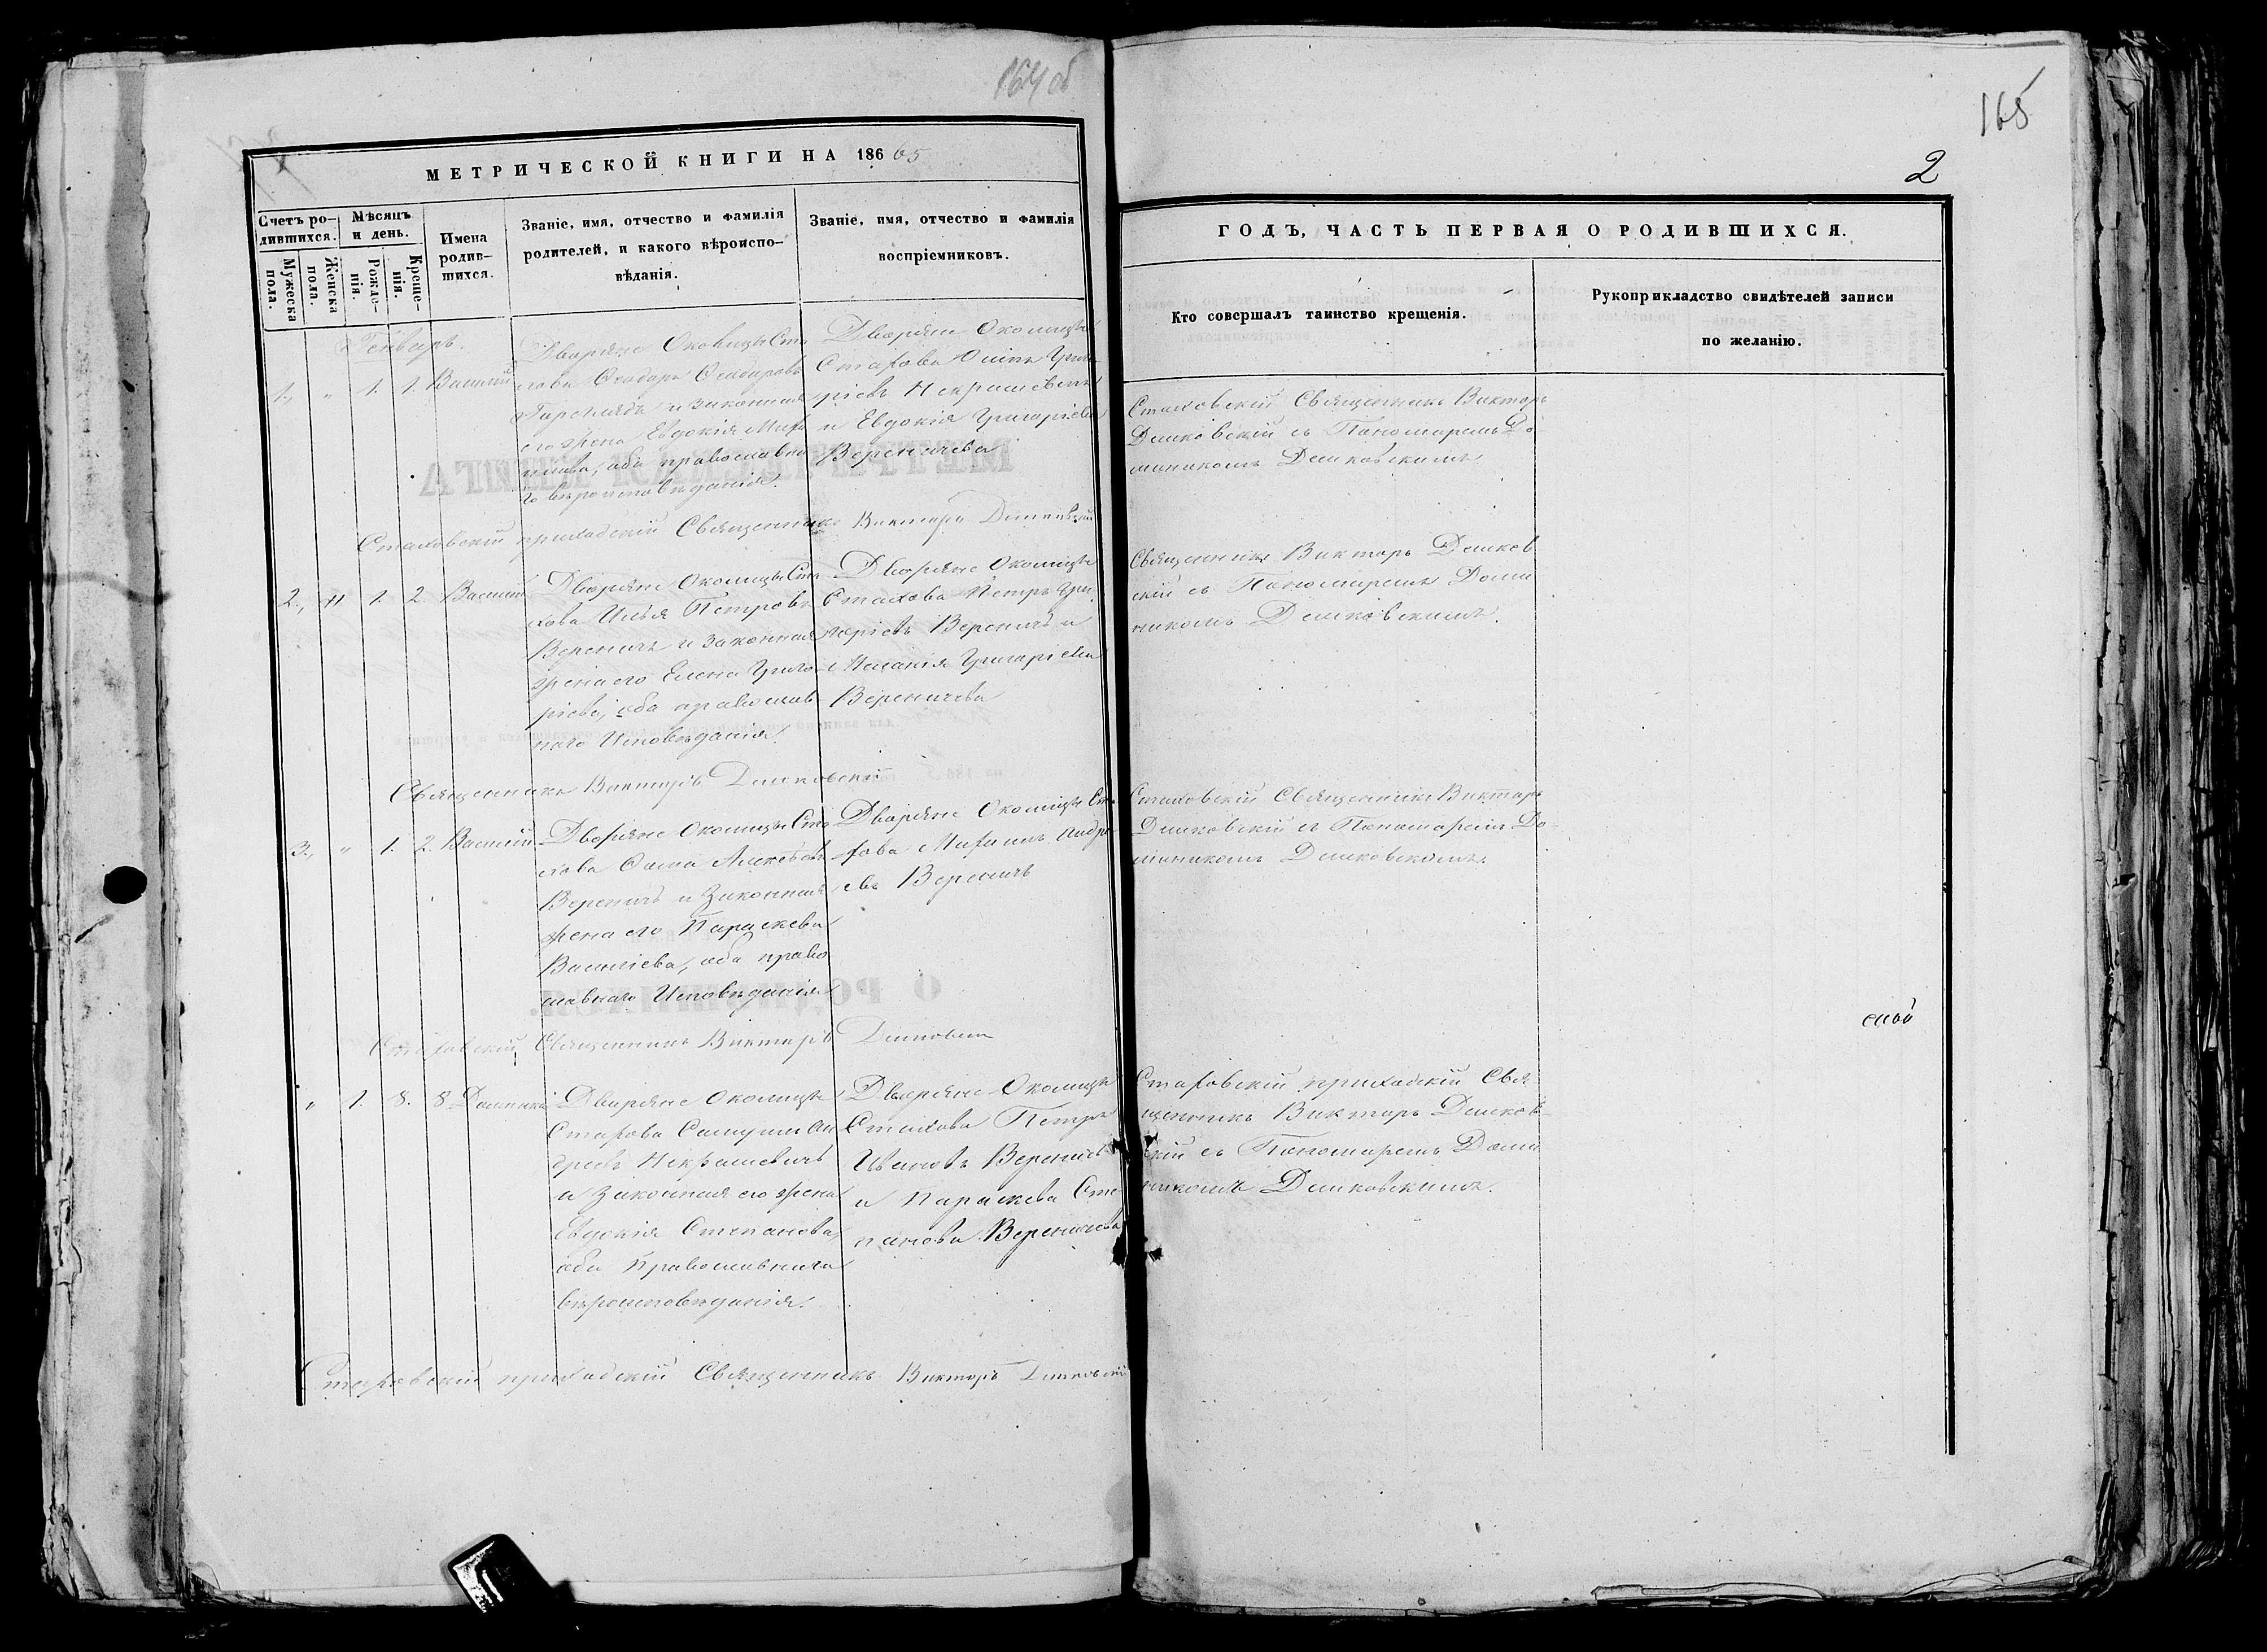 164 об
165
2
МЕТРИЧЕСКОЙ КНИГИ НА 186 65
ГОДЪ, ЧАСТЬ ПЕРВАЯ О РОДИВШИХСЯ.
Счетъ ро-
дившихся.
Мужеска
пола.
Женска
пола.
Мѣсяцъ
и день.
Рожде-
нія.
Креще-
нія.
Имена
родив-
шихся.
Званіе, имя, отчество и фамилія
родителей, и какого вѣроиспо-
вѣданія.
Званіе, имя, отчество и фамилія
воспріемниковъ.
Кто совершалъ таинство крещенія.
Рукоприкладство свидѣтелей записи
по желанію.
Генварь.
1., " 1. 1. Василій
Дворяне Околицы Ста
хова
и законная
его жена Евдокія
оба православна
го вѣроисповѣданія.
Дворяне Околицы
Стахова Григо
ріевъ Некрашевичъ
и Евдокія Григоріева
Вереничева
Стаховскій Священникъ Викторъ
Дашковскій съ Пономаремъ До
миникомъ Дашковскимъ
Стаховскій приходскій Священникъ Викторъ Дашковскій
2., " 1. 2. Василій
Дворяне Околицы Ста
хова Илья Петровъ
Вереничъ и законная
жена его Елена Григо
ріева, оба православ
наго Исповѣданія.
Дворяне Околицы
Стахова Петръ Гри
горіевъ Вереничъ и
Меланія Григоріева
Вереничева
Священникъ Викторъ Дашков
скій съ Пономаремъ Доми
никомъ Дашковскимъ.
Священникъ Викторъ Дашковскій
3., " 1. 2. Василій
Дворяне Околицы Ста
хова
Вереничъ и Законная
жена его Параскева
Василіева, оба право
славнаго Исповѣданія
Дворяне Околицы Ста
хова Андре
евъ Вереничъ
Стаховскій Священникъ Викторъ
Дашковскій съ Пономаремъ До
миникомъ Дашковскимъ.
Стаховскій Священникъ Викторъ
" 1. 8. 8.
Дворяне Околицы
Стахова Самуилъ Ан
дреевъ Некрашевичъ
и Законная его жена
Евдокія Степанова,
оба Православнаго
вѣроисповѣданія.
Дворяне Околицы
Стахова Петръ
Ивановъ Вереничъ
и Параскева Сте
панова Вереничева
Стаховскій приходскій Свя
щенникъ Викторъ Дашков
скій съ Пономаремъ Доми
никомъ Дашковскимъ.
Стаховскій приходскій Священникъ Викторъ Дашковскій